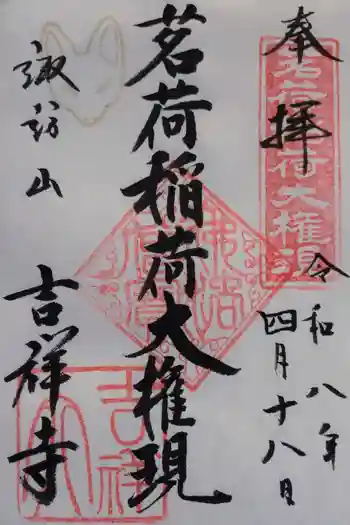 奉拝
令和八年
四月十八日
茗荷稲荷大権現
諏訪山
吉祥寺
茗荷稲荷大権現